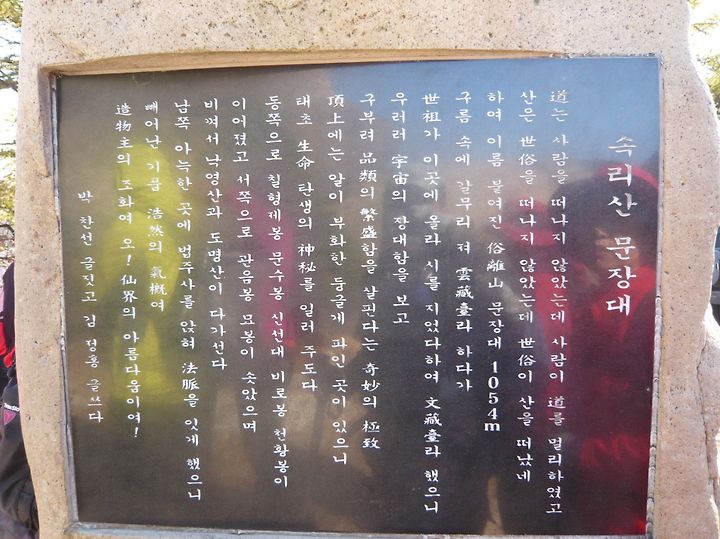 속리산 문장대
道는 사람을 떠나지 않았는데 사람이 道를 멀리하였고
산은 世俗을 떠나지 않았는데 世俗이 산을 떠났네
하여 이름 붙여진 俗離山 문장대 1054m
구름 속에 갈무리 져 雲藏臺라 하다가
世祖가 이곳에 올라 시를 지었다하여 文藏臺라 했으니
우러러 宇宙의 장대함을 보고
구부려 品類의 繁盛함을 살핀다는 奇妙의 極致
頂上에는 알이 부화한 둥글게 파인 곳이 있으니
태초 生命 탄생의 神秘를 일러 주도다
동쪽으로 칠형제봉 문수봉 신선대 비로봉 천황봉이
이어졌고 서쪽으로 관음봉 묘봉이 솟았으며
비껴서 낙영산과 도명산이 다가선다
남쪽 아늑한 곳에 법주사를 앉혀 法脈을 잇게 했으니
빼어난 기품 浩然의 氣槪여
造物主의 조화여 오! 仙界의 아름다움이여!
박 찬선 글짓고 김 정홍 글쓰다